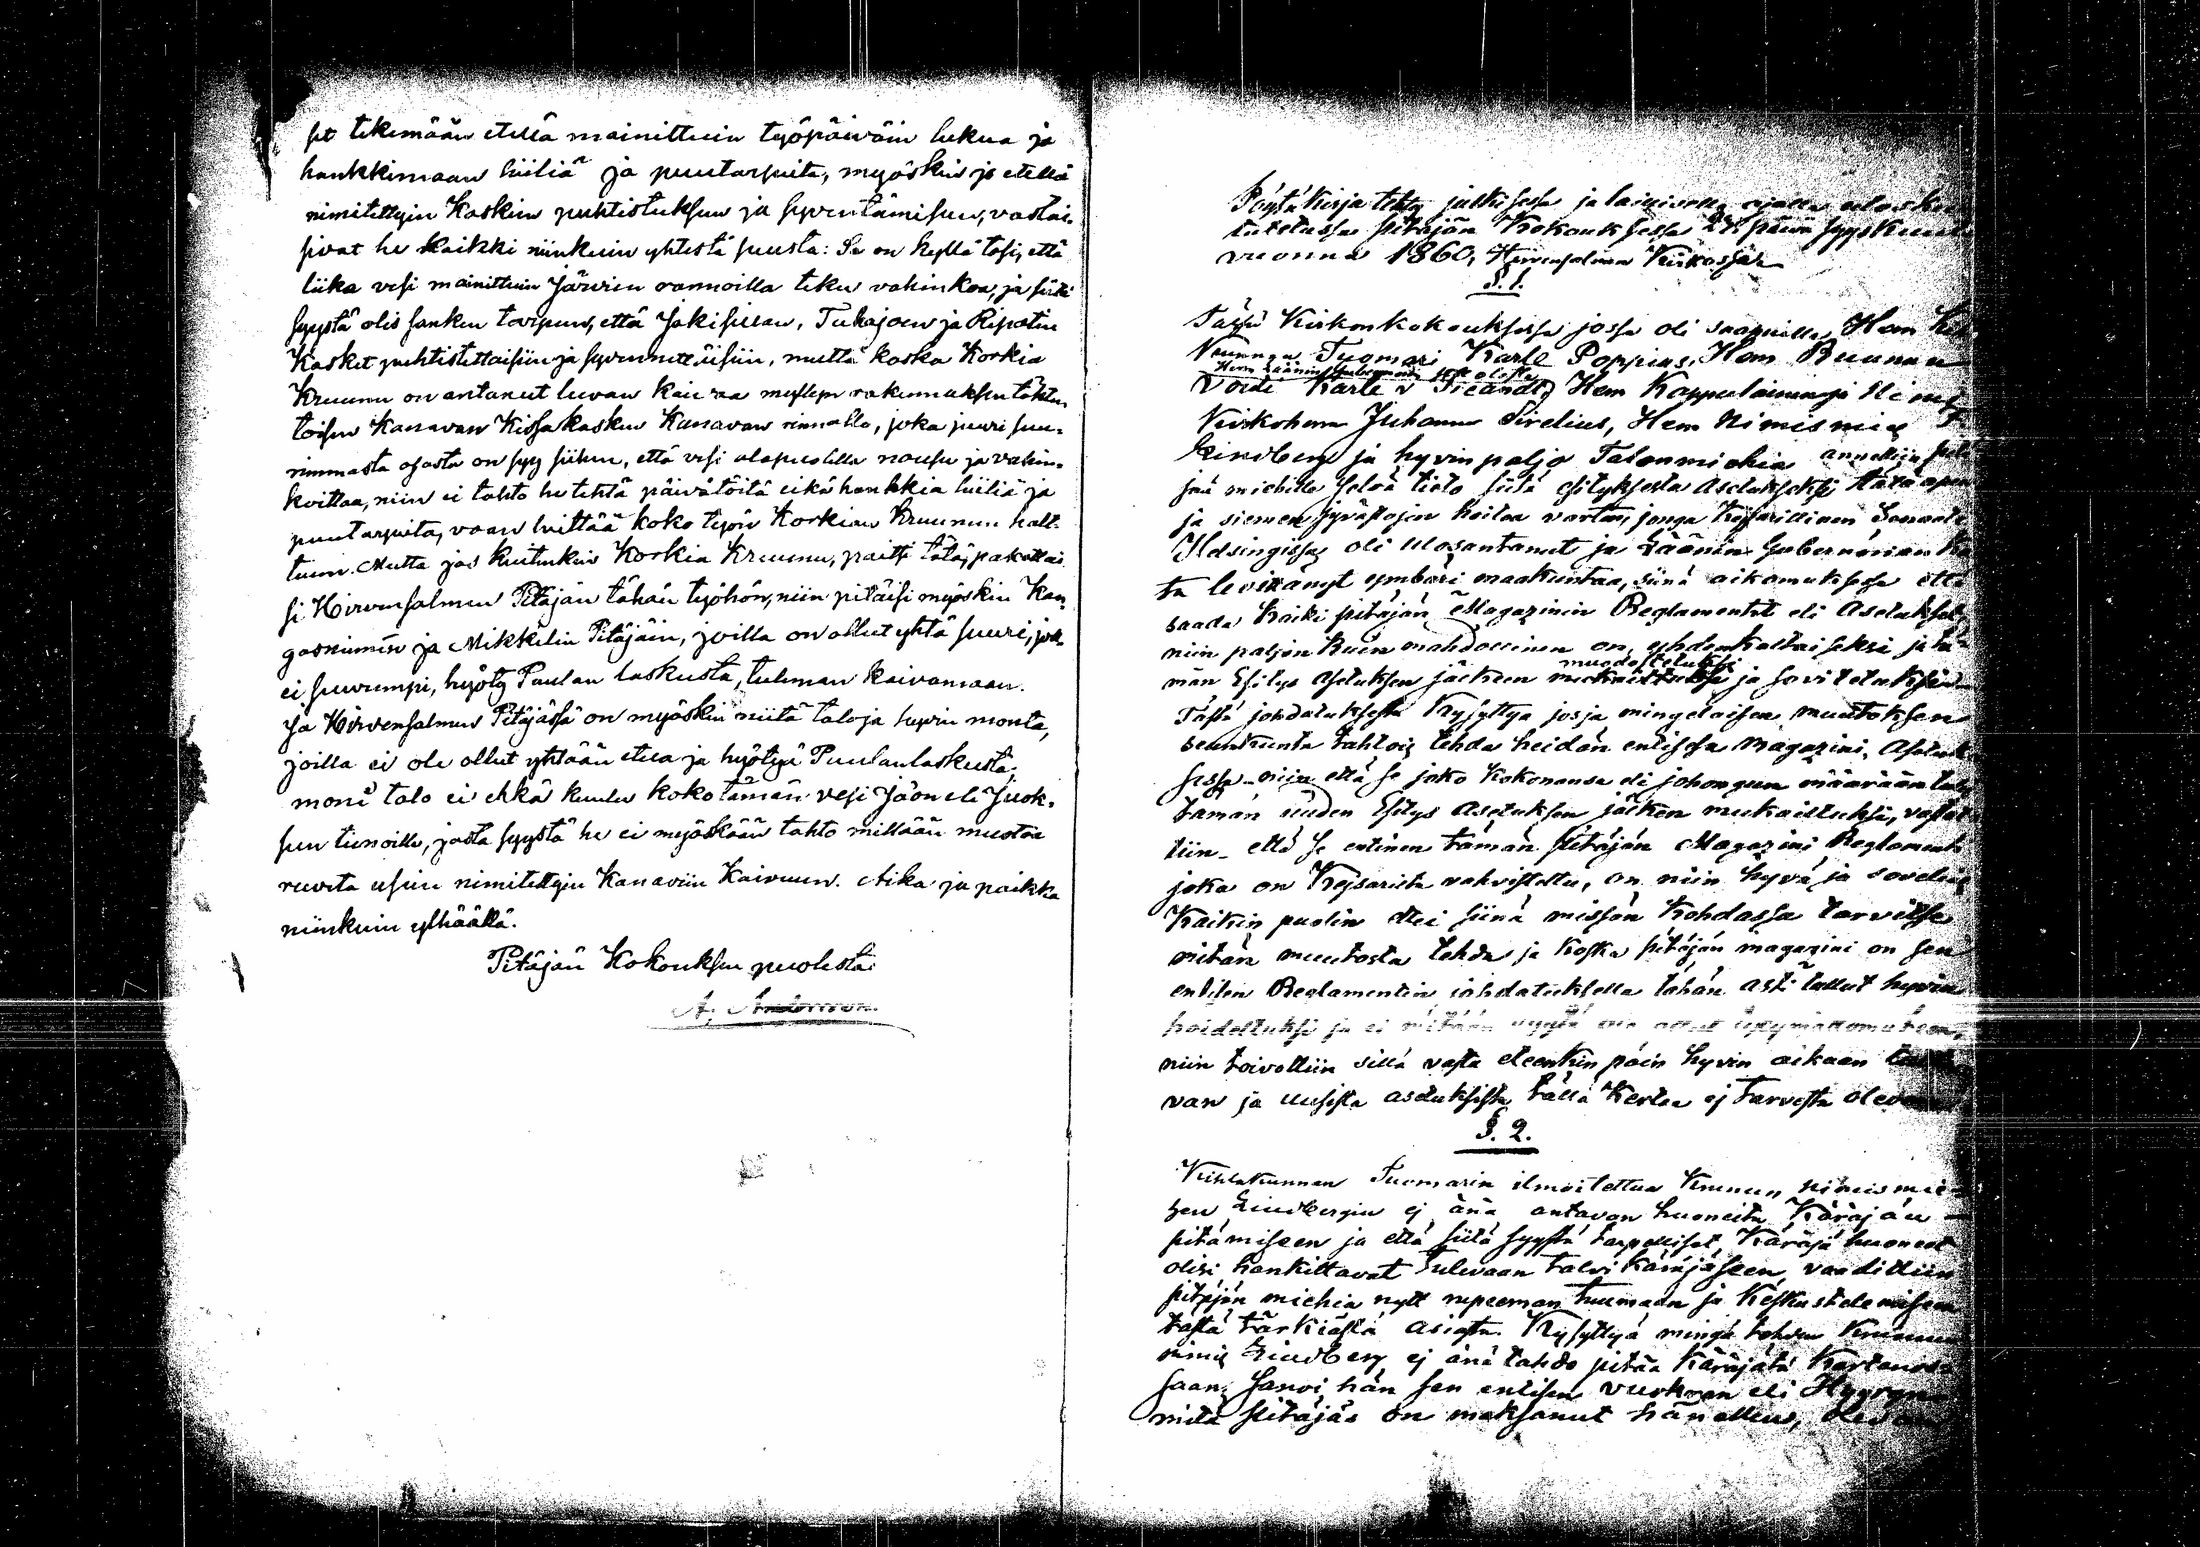 set tekemään etellä mainittuin työpäiväin lukua ja
hankkimaan hiiliä ja puutarpeita, myöskin jo etellä
nimitettyin Koskein puhtistuksen ja syventämisen, vastai-
sivat he kaikki niinkuin yhtestä suusta: Se on kyllä tosi, että
liika vesi mainittuin Järwien rannoilla teke vahinkoa, ja siitä
syystä olis sanken tarpeen, että Jokisillan, Tuhajoen ja Ripatin
Kosket puhtistettaisiin ja syvennettäisiin, mutta koska Korkia
Kruunu on antanut luvan kaivaa myllyn rakennuksen tähten
toisen Kanavan Kissakosken Kanavan rinnalle, joka juuri suu-
rimmasta osasta on syy siihen, että vesi alapuolilla nousee ja vahin-
koittaa, niin ei tahto he tehtä päivätöitä eikä hankkia hiiliä ja
puutarpeita, vaan heittää koko työn Korkian Kruunun halt-
tuun. Mutta jos kuitenkin Korkia Kruunu, paitsi tätä, pakottai
si Hirvensalmen Pitäjän tähän työhön, niin pitäisi myöskin Kan-
gasniemen ja Mikkelin Pitäjäin, joilla on ollut yhtä suuri, jos
ei suurempi, hyöty Puulan laskusta, tuleman kaivamaan.
Ja Hirvensalmen Pitäjässä on myöskin niitä taloja hyvin monta,
joilla ei ole ollut yhtään etua ja hyötyä Puulanlaskusta;
moni talo ei ehkä kuulu koko tämän vesi Jaon eli Juok-
sun tienoille, josta syystä he ei myöskään tahto millään muotoa
ruveta usein nimitettyin Kanaviin Kaivuun. Aika ja paikka
niinkuin ylhäällä.
Pitäjän Kokouksen puolesta:
A. Andersson.
Pöytäkirja tehty julkisessa ja laillisella ajalla uloskuu
tutetussa pitäjän Kokouksessa päivä syyskuuta
vuonna 1860, Hirvensalmen Kirkossa
§. 1.
Tässä Kirkonkokouksessa jossa oli saapuilla, Herra
Tuomari Karle Poppius, Herra Ruunun
Vouti Karle v Herra Kappalainen ja
Kirkoherra Juhanna Sirelius, Herra Nimismies
Lindberg ja hyvin paljo Talonmiehiä annettiin
jän miehille selvä tieto siitä esityksestä Asetukseksi
ja siemen jyvästöjen hoitoa varten jonga Keisarillinen Senaati
Helsingissä oli ulosantanut ja Läänin Gubernörian
ta levitänyt ymbäri maakuntaa, siinä aikomuksessa että
saada kaiki pitäjän Magazinin Reglamentit eli Asetukset,
niin paljon kuin mahdollinen on, yhdenkaltaiseksi ja tä-
muodostetuksi
män Esitys Asetuksen jälkeen ja sovitetuksi
Tästä johdatuksesta Kysyttyä jos ja mingelaisen muutoksen
seurakunta tahtois tehdä heidän entisessä Magazini, Asetuk
sessa niin että se joko kokonansa eli johongun määrään
tämän uuden Esitys Asetuksen jälken mukaituksi, vastat
tiin että se entinen tämän Pitäjän Magazini Reglamenti
joka on Keisarilta vahvistettu, on niin hyvä ja sovelias
Kaikin puolin ettei siinä missän Kohdassa tarvitse
mitän muutosta tehdä ja koska pitäjän magazini on sen
entisen Reglamentin johdatuksella tähän asti tullut hyvin
hoidetuksi ja ei mitään syytä ole ollut tyytymättömyteen,
niin toivottiin sillä vasta eteenkin päin hyvin aikaan
van ja uusista asetuksista tällä Kertaa ej tarvetta olevan
§. 2.
Kihlakunnan Tuomarin ilmoitettua Kruunun nimismie-
hen Lindbergin ej änä antavan huoneita Käräjän
pitämiseen ja että siitä syystä tarpelliset Käräjä huoneet
olisi hankittavat tulevaan talvi käräjäseen, vaadittiin
pitäjän miehiä nytt rupeeman tuumaan ja Keskustelemiseen
tästä tärkiästä asiasta. Kysyttyä mingä tähden Kruunun
nimis Lindberg ej änä tahdo pitää Käräjätä Kartanos
saan, sanoi hän sen entisen vuokran eli Hyyryn
mitä Pitäjäs on maksanut hänellen,